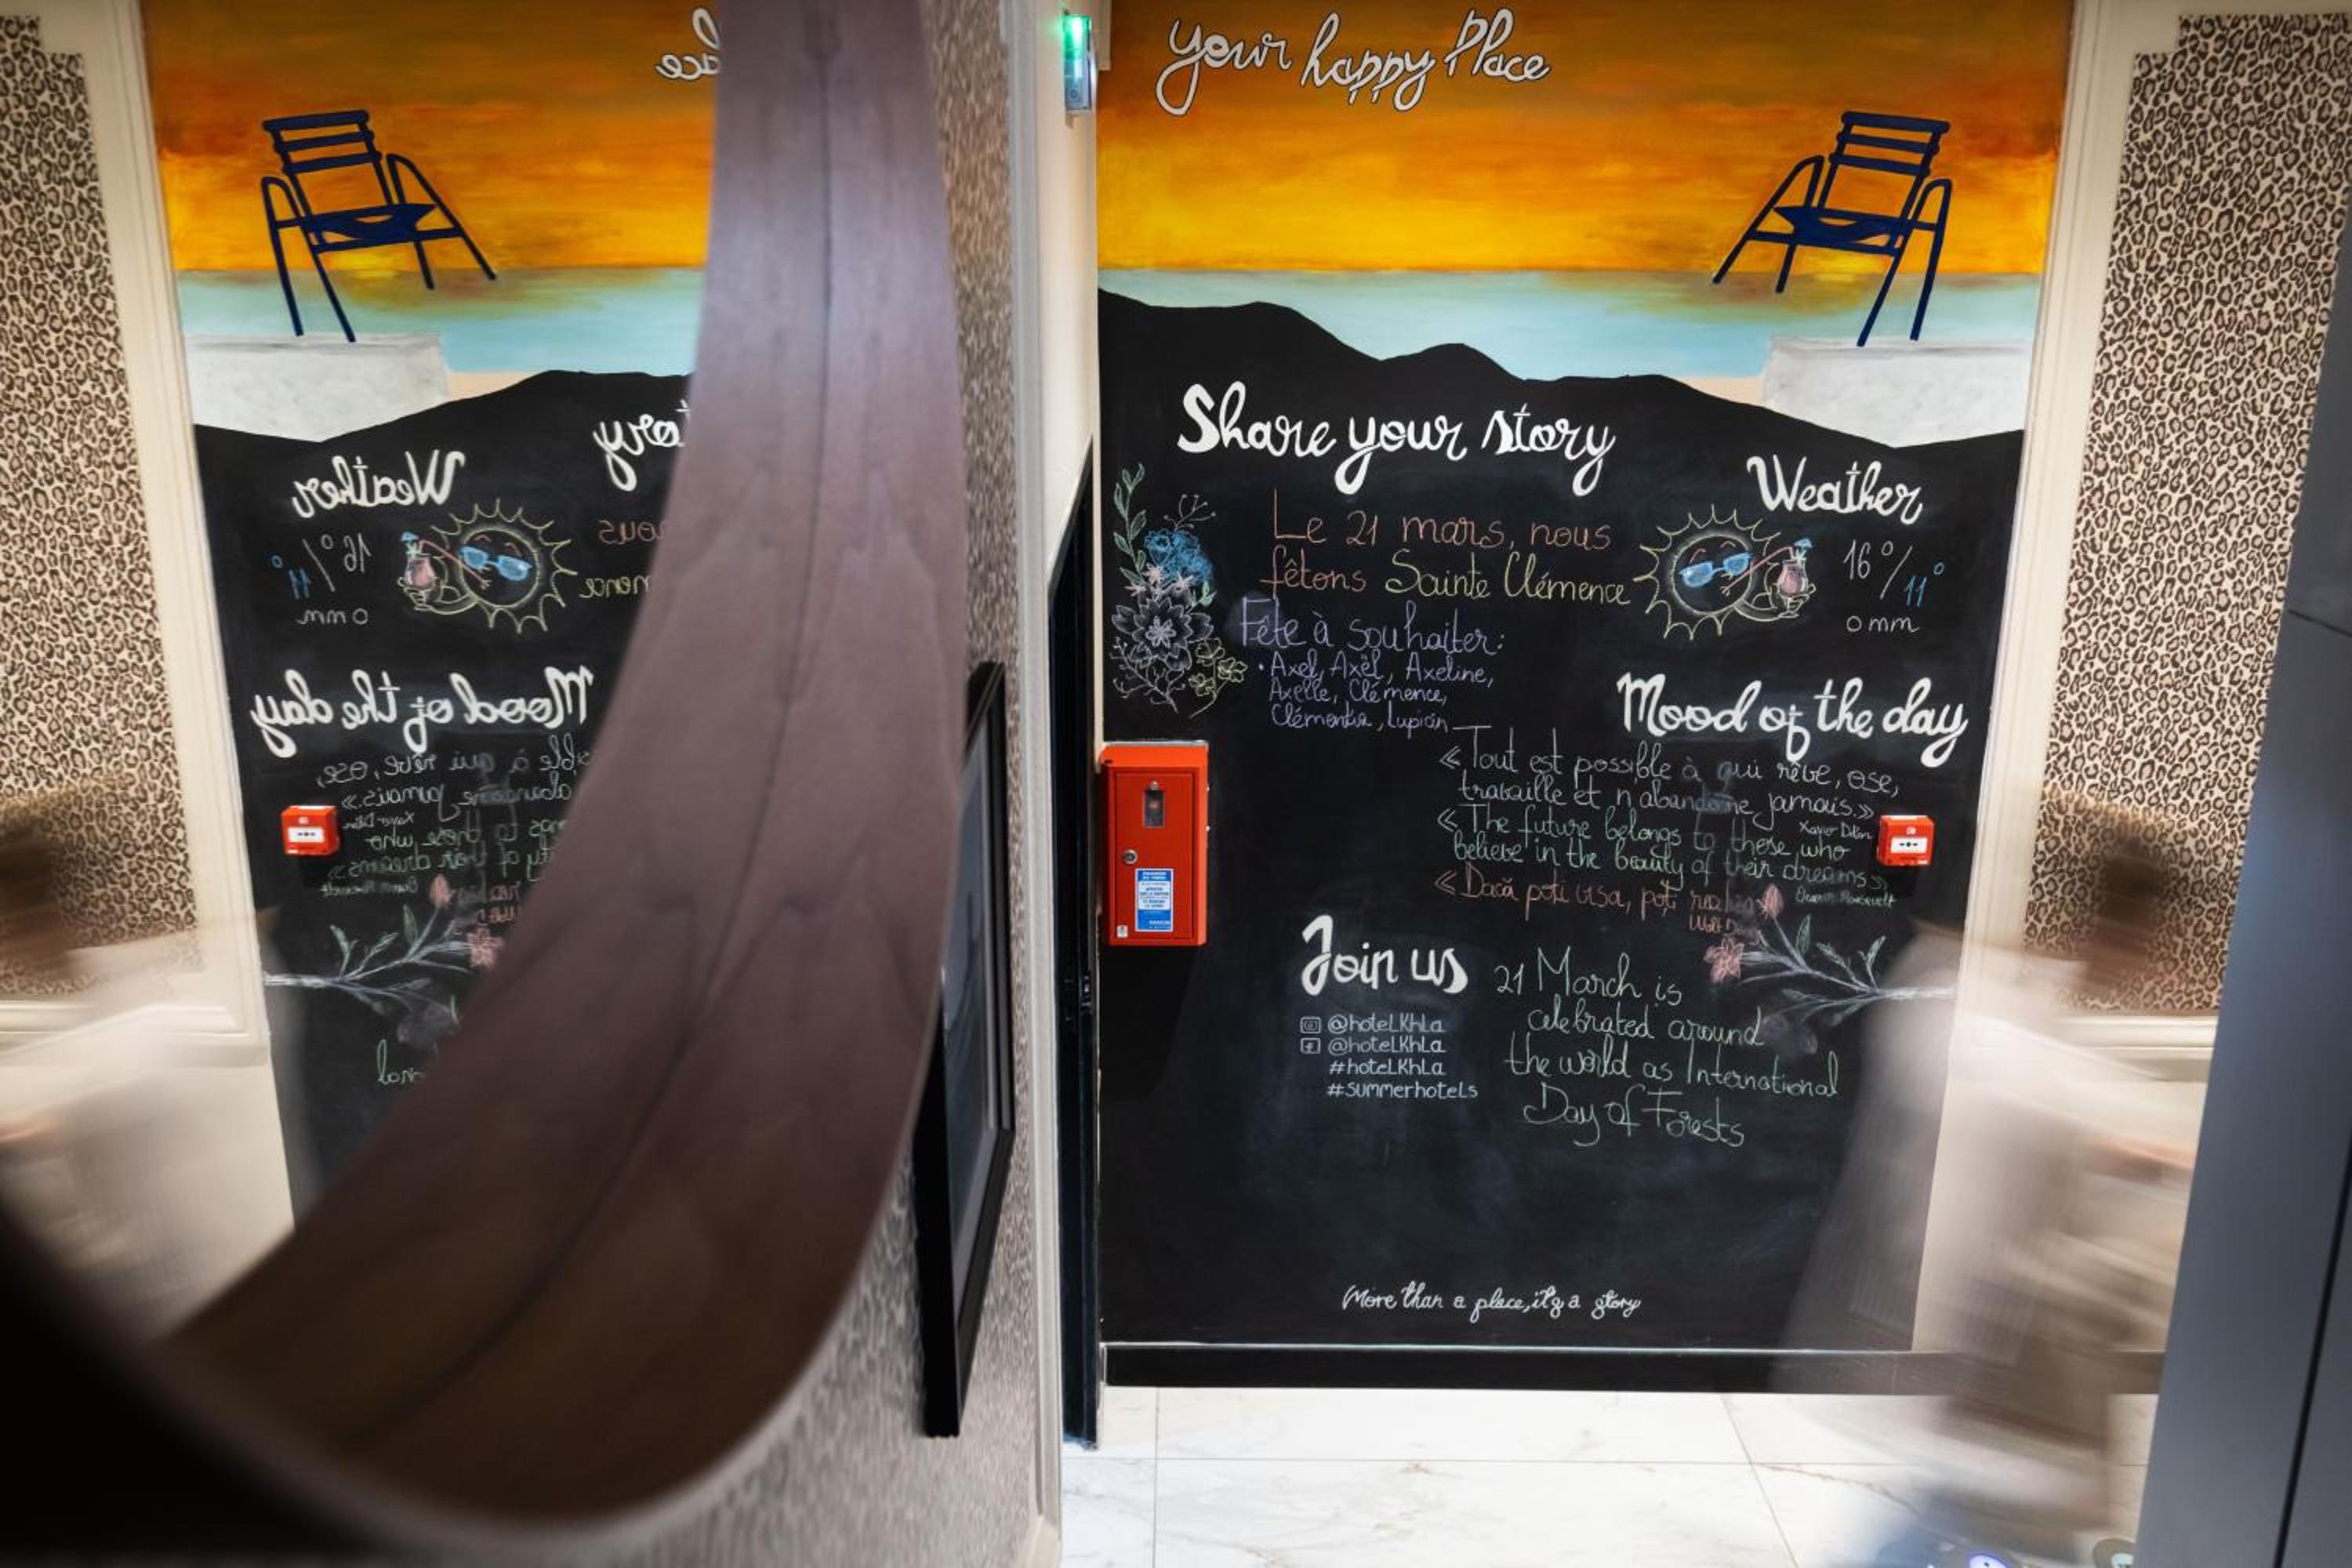 your happy Place
Share your story
Le 21 mars, nous
fêtons Sainte Clémence
Fête à souhaiter:
• Axel, Axël, Axeline,
Axelle, Clémence,
Lupicin
Weather
16°/11°
0 mm
Mood of the day
« Tout est possible à qui rêve, ose,
travaille et n'abandonne jamais.»
Xavier Dolan
« The future belongs to those who
believe in the beauty of their dreams»
Eleanor Roosevelt
« Dacă poți visa, poți
Walt
Join us
@hoteLKhLa
@hoteLKhLa
#hoteLKhLa
#summerhoteLs
21 March is
celebrated around
the world as International
Day of Forests
More than a place, it's a story